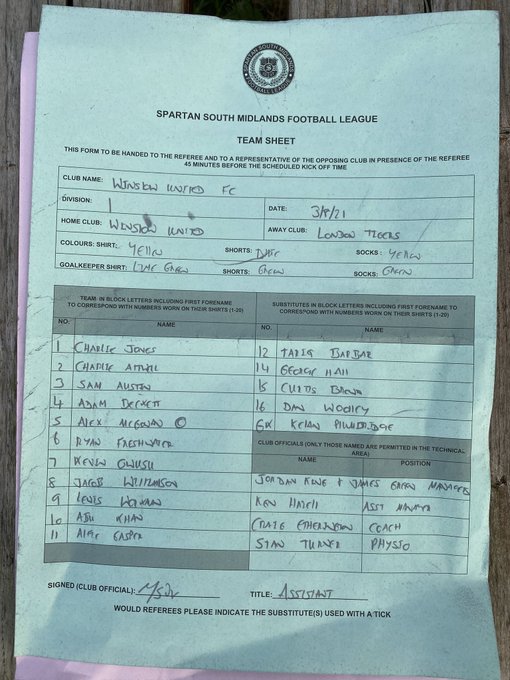 SPARTAN SOUTH MIDLANDS
FOOTBALL LEAGUE
SPARTAN SOUTH MIDLANDS FOOTBALL LEAGUE
TEAM SHEET
THIS FORM TO BE HANDED TO THE REFEREE AND TO A REPRESENTATIVE OF THE OPPOSING CLUB IN PRESENCE OF THE REFEREE
45 MINUTES BEFORE THE SCHEDULED KICK OFF TIME
CLUB NAME: WINSLOW UNITED FC
DIVISION: 1 DATE: 3/8/21
HOME CLUB: WINSLOW UNITED AWAY CLUB: LONDON TIGERS
COLOURS: SHIRT: YELLOW SHORTS: SOCKS: YELLOW
GOALKEEPER SHIRT: LIME GREEN SHORTS: GREEN SOCKS: GREEN
TEAM IN BLOCK LETTERS INCLUDING FIRST FORENAME
TO CORRESPOND WITH NUMBERS WORN ON THEIR SHIRTS (1-20)
NO. NAME
1 CHARLIE JONES
2 CHARLIE
3 SAM AUSTIN
4 ADAM
5 ALEX C
6 RYAN FRESHWATER
7 KEVIN OWUSU
8 JACOB WILLIAMSON
9 LEWIS
10 KHAN
11 CASPER
SUBSTITUTES IN BLOCK LETTERS INCLUDING FIRST FORENAME TO
CORRESPOND WITH NUMBERS WORN ON THEIR SHIRTS (1-20)
NO. NAME
12 TARIQ BARBAR
14 GEORGE HALL
15 CURTIS BROWN
16 DAN WOOLLEY
KELAN
CLUB OFFICIALS (ONLY THOSE NAMED ARE PERMITTED IN THE TECHNICAL
AREA)
NAME POSITION
JORDAN KING + JAMES GREEN MANAGERS
KEN ASST MANAGER
CRAIG COACH
STAN TURNER PHYSIO
SIGNED (CLUB OFFICIAL): TITLE: ASSISTANT
WOULD REFEREES PLEASE INDICATE THE SUBSTITUTE(S) USED WITH A TICK